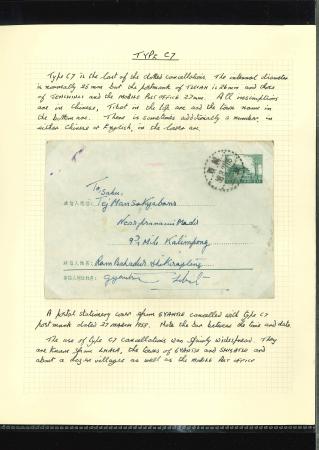 TYPE C7
Type C7 is the last of the dotted cancellations. The internal diameter
is normally 25 mm but the postmark of is 26mm and those
of and the MOBILE POST OFFICE 27mm. All inscriptions
are in Chinese, Tibet in the top arc and the town name in
the bottom arc. There is sometimes additionally a number, in
either Chinese or English, in the lower arc.
To,
Sahu.
Tej Man Sakyabans
Near Pranami Mandir
9th Mile Kalimpong
Ram Bahadur
Gyantse Tibet
A postal stationery cover from GYANTSE cancelled with type C7
postmark dated 27 MARCH 1958. Note the bar between the time and date.
The use of type C7 cancellations was fairly widespread. They
are known from LHASA, the towns of GYANTSE and SHIGATSE and
about a dozen villages as well as the MOBILE POST OFFICE